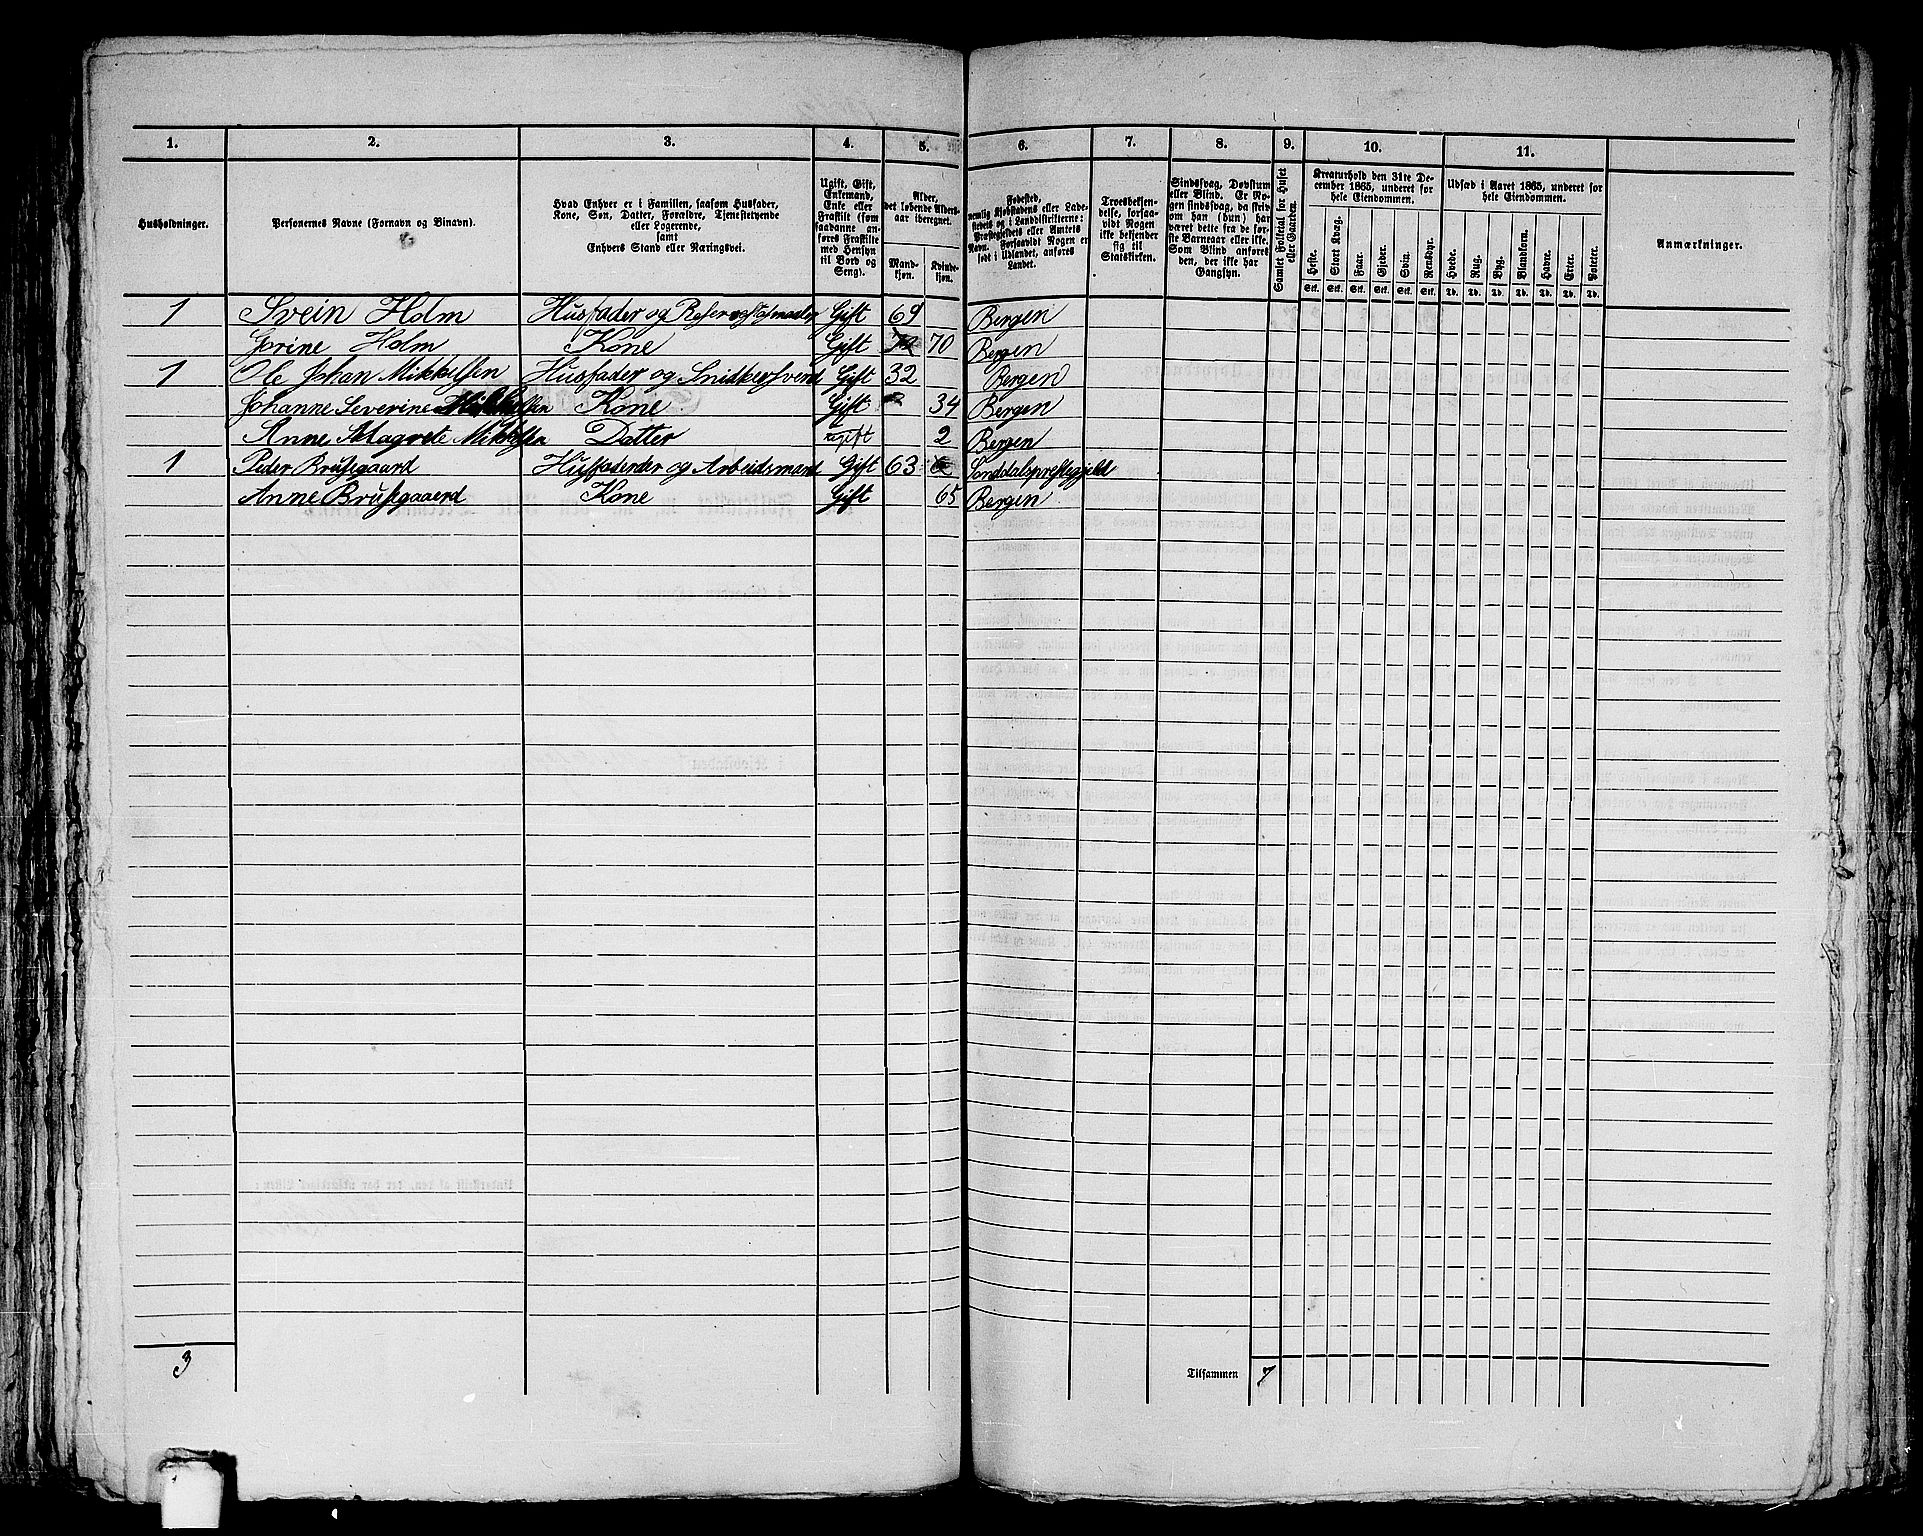 1. 2. 3. 4. 5. 6. 7. 8. 9. 10. 11.
Husholdninger.
Personernes Navne (Fornavn og Binavn).
Hvad Enhver er i Familien, saasom Husfader,
Kone, Søn, Datter, Forældre, Tjenestetyende
eller Logerende,
samt
Enhvers Stand eller Næringsvei.
Ugift, Gift,
Enkemand,
Enke eller
Fraskilt (som
saadanne an-
føres Fraskilte
med Hensyn
til Bord og
Seng).
Alder,
det løbende Alders-
aar iberegnet.
Mand-
kjøn.
Kvinde-
kjøn.
Fødested,
nemlig Kjøbstadens eller Lade-
stedets og i Landdistrikterne:
Præstegjeldets eller Amtets
Navn. Forsaavidt Nogen er
født i Udlandet, anføres
Landet.
Troesbekjen-
delse, forsaa-
vidt Nogen
ikke bekjender
sig til
Statskirken.
Sindssvag, Døvstum
eller Blind. Er No-
gen sindssvag, da skriv
om han (hun) har
været dette fra de før-
ste Barneaar eller ikke.
Som Blind anføres
den, der ikke har
Gangsyn.
Samlet Folketal for Huset
eller Gaarden.
Kreaturhold den 31te De-
cember 1865, underet for
hele Eiendommen.
Heste. Stort Kvæg. Faar. Gjeder. Svin. Rensdyr.
Stk. Stk. Stk. Stk. Stk. Stk.
Udsæd i Aaret 1865, underet for
hele Eiendommen.
Hvede. Rug. Byg. Blandkorn. Havre. Erter. Poteter.
Td. Td. Td. Td. Td. Td. Td.
Anmærkninger.
1 Svein Holm Husfader og Gift 69 Bergen
Gorine Holm Kone Gift 70 Bergen
1 Ole Johan Mikkelsen Husfader og Snidkersvend Gift 32 Bergen
Johanne Severine Mikkelsen Kone Gift 34 Bergen
Anne Magrete Mikkelsen Datter ugift 2 Bergen
1 Peder Brusegaard Husfaderder og Arbeidsmand Gift 63
Anne Brusegaaerd Kone Gift 65 Bergen
3
Tilsammen 7